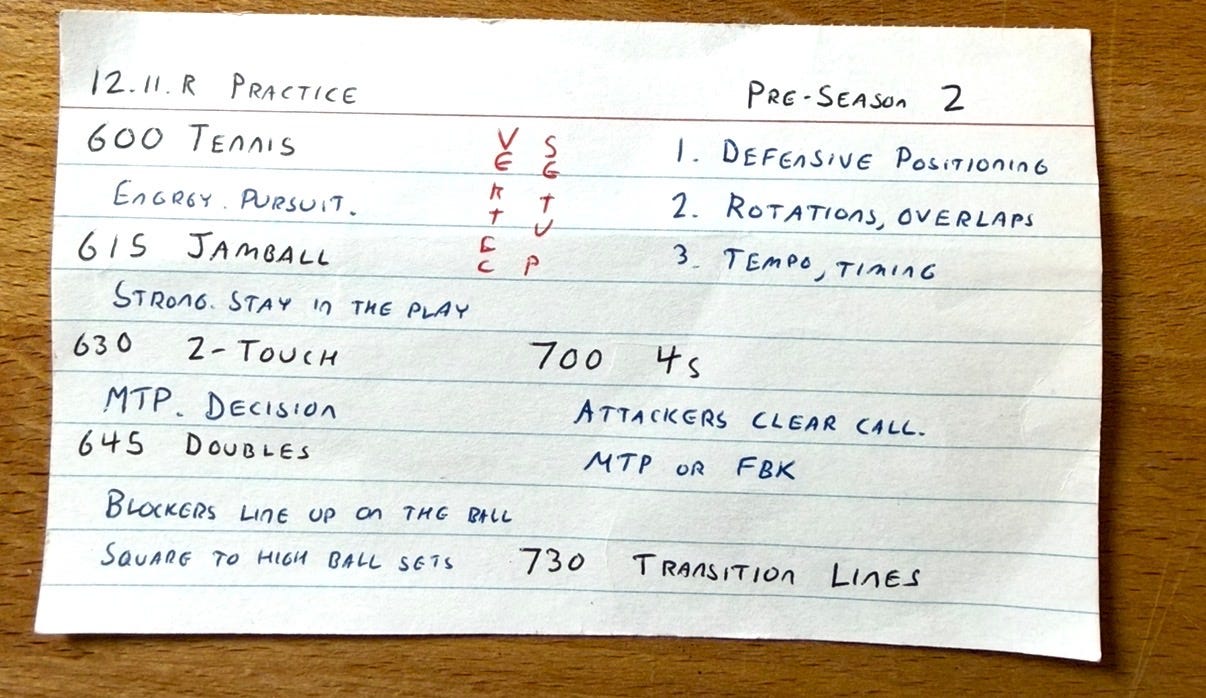 12.11.R PRACTICE
PRE-SEASON 2
600 TENNIS
ENERGY. PURSUIT.
615 JAMBALL
STRONG. STAY IN THE PLAY
630 2-TOUCH
MTP. DECISION
645 DOUBLES
BLOCKERS LINE UP ON THE BALL
SQUARE TO HIGH BALL SETS
VERTEC
SETUP
1. DEFENSIVE POSITIONING
2. ROTATIONS, OVERLAPS
3. TEMPO, TIMING
700 4s
ATTACKERS CLEAR CALL.
MTP OR FBK
730 TRANSITION LINES